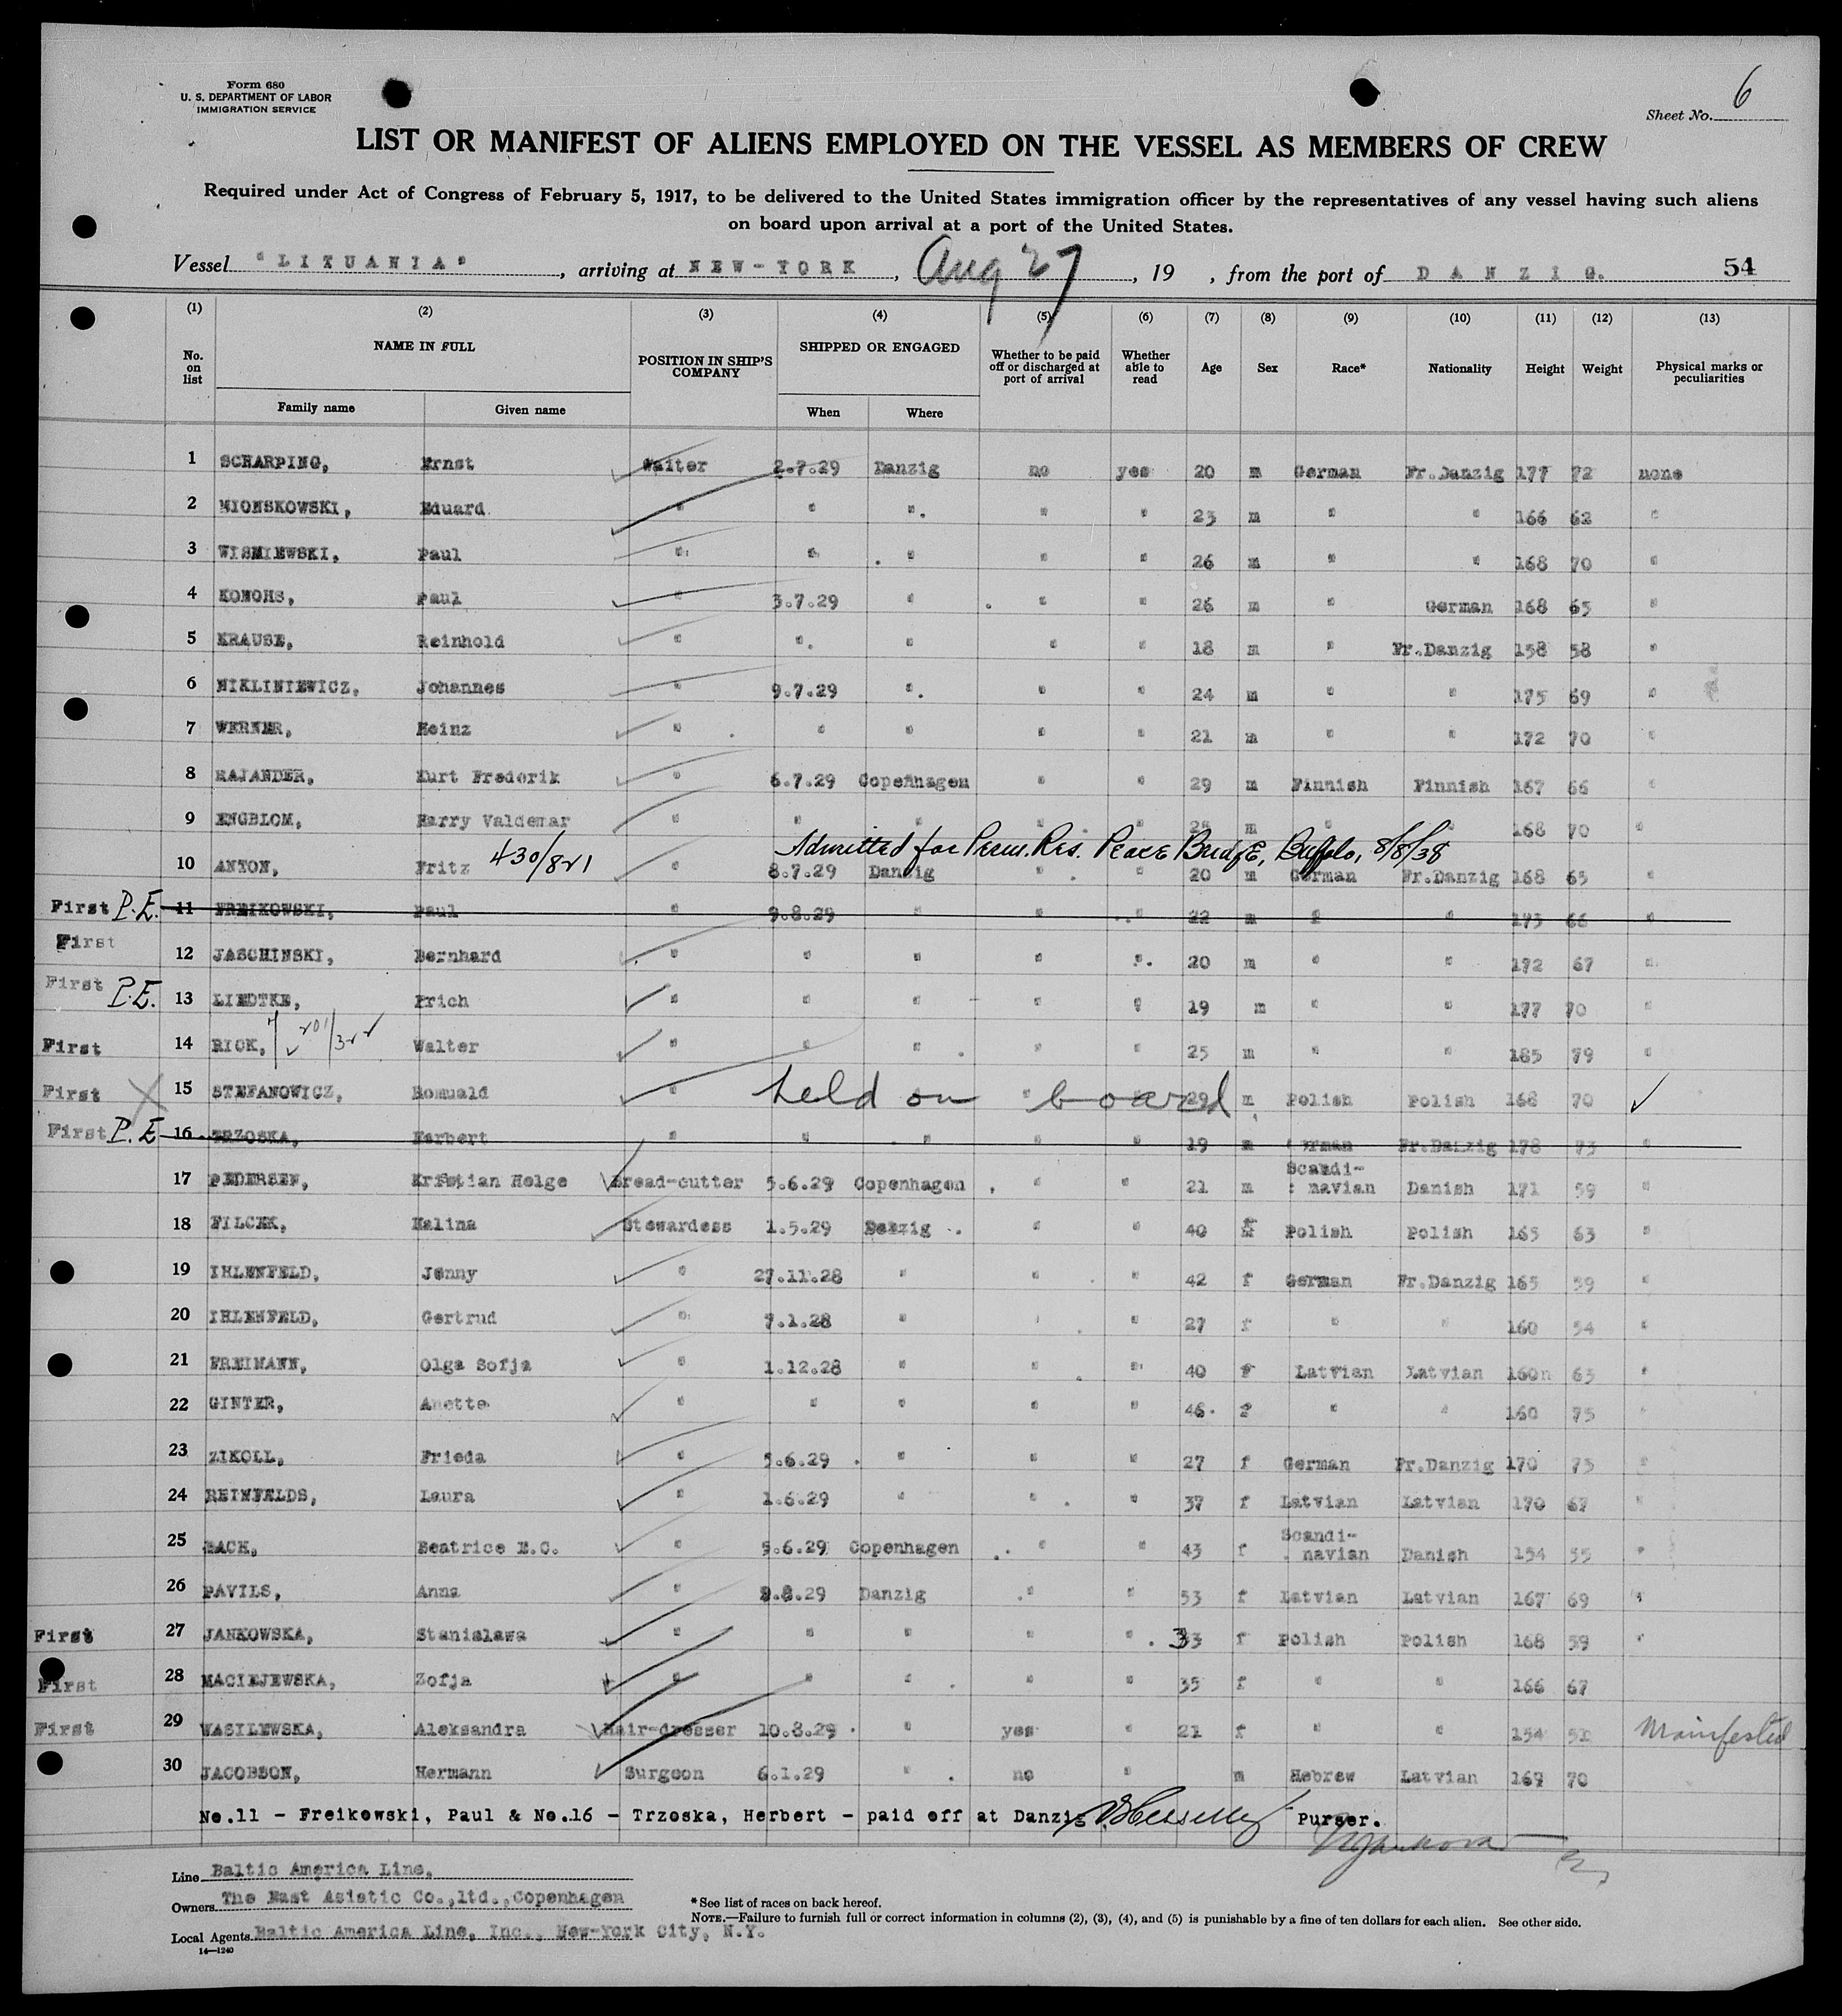 Form 680
U. S. DEPARTMENT OF LABOR
IMMIGRATION SERVICE
Sheet No. 6
LIST OR MANIFEST OF ALIENS EMPLOYED ON THE VESSEL AS MEMBERS OF CREW
Required under Act of Congress of February 5, 1917, to be delivered to the United States immigration officer by the representatives of any vessel having such aliens
on board upon arrival at a port of the United States.
Vessel "LITUANIA", arriving at NEW-YORK, Aug 27, 19 , from the port of DANZIG. 54
(1) (2) (3) (4) (5) (6) (7) (8) (9) (10) (11) (12) (13)
No. on list NAME IN FULL POSITION IN SHIP'S COMPANY SHIPPED OR ENGAGED Whether to be paid off or discharged at port of arrival Whether able to read Age Sex Race* Nationality Height Weight Physical marks or peculiarities
Family name Given name When Where
1 SCHARPING, Ernst Waiter 2.7.29 Danzig no yes 20 m German Fr.Danzig 177 72 none
2 MIONSKOWSKI, Eduard " " " " " 23 m " " 166 62 "
3 WISNIEWSKI, Paul " " " " " 26 m " " 168 70 "
4 KONOHS, Paul " 3.7.29 " " " 26 m " German 168 65 "
5 KRAUSE, Reinhold " " " " " 18 m " Fr.Danzig 158 58 "
6 NIKLINIEWICZ, Johannes " 9.7.29 " " " 24 m " " 175 69 "
7 WERNER, Heinz " " " " " 21 m " " 172 70 "
8 RAJANDER, Kurt Frederik " 6.7.29 Copenhagen " " 29 m Finnish Finnish 167 66 "
9 ENGBLOM, Harry Valdemar " " " " " 28 m " " 168 70 "
430/821 Admitted for Perm. Res. Peace Bridge, Buffalo, 8/8/38
10 ANTON, Fritz " 8.7.29 Danzig " " 20 m German Fr.Danzig 168 65 "
First P.E. 11 FREIKOWSKI, Paul " 9.8.29 " " " 22 m " " 173 66 "
First 12 JASCHINSKI, Bernhard " " " " " 20 m " " 172 67 "
First P.E. 13 LIEDTKE, Erich " " " " " 19 m " " 177 70 "
First 14 RICK, Walter " " " " " 25 m " " 185 79 "
First X 15 STEFANOWICZ, Romuald " held on board 29 m Polish Polish 168 70 ✓
First P.E 16 TRZOSKA, Herbert " " " " " 19 m German Fr.Danzig 178 73 "
17 PEDERSEN, Kristian Helge Bread-cutter 5.6.29 Copenhagen " " 21 m Scandi-navian Danish 171 59 "
18 FILCEK, Halina Stewardess 1.5.29 Danzig " " 40 f Polish Polish 165 63 "
19 IHLENFELD, Jenny " 27.11.28 " " " 42 f German Fr.Danzig 165 59 "
20 IHLENFELD, Gertrud " 7.1.28 " " " 27 f " " 160 54 "
21 FREIMANN, Olga Sofja " 1.12.28 " " " 40 f Latvian Latvian 160 63 "
22 GINTER, Anette " " " " " 46 f " " 160 75 "
23 ZIKOLL, Frieda " 5.6.29 " " " 27 f German Fr.Danzig 170 73 "
24 REINFELDS, Laura " 1.6.29 " " " 37 f Latvian Latvian 170 67 "
25 BACH, Beatrice E.C. " 5.6.29 Copenhagen " " 43 f Scandi-navian Danish 154 55 "
26 PAVILS, Anna " 9.8.29 Danzig " " 53 f Latvian Latvian 167 69 "
First 27 JANKOWSKA, Stanislawa " " " " " 33 f Polish Polish 168 59 "
First 28 MACIEJEWSKA, Zofja " " " " " 35 f " " 166 67
First 29 WASILEWSKA, Aleksandra Hair-dresser 10.8.29 " yes " 21 f " " 154 51 Mainfested
30 JACOBSON, Hermann Surgeon 6.1.29 " no " m Hebrew Latvian 169 70
No.11 - Freikowski, Paul & No.16 - Trzoska, Herbert - paid off at Danzig. Purser.
Line Baltic America Line,
Owners The East Asiatic Co.,ltd.,Copenhagen
Local Agents Baltic America Line, Inc., New-York City, N.Y.
14—1240
*See list of races on back hereof.
NOTE.—Failure to furnish full or correct information in columns (2), (3), (4), and (5) is punishable by a fine of ten dollars for each alien. See other side.